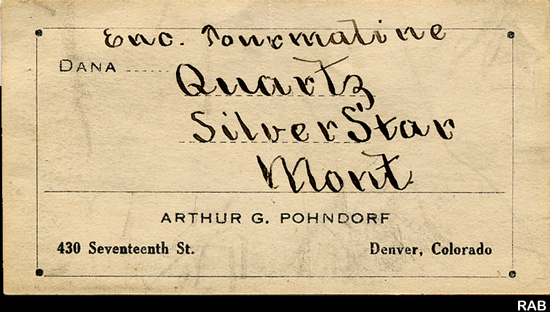 Enc. Tourmaline
DANA ......
Quartz
Silver Star
Mont.
ARTHUR G. POHNDORF
430 Seventeenth St. Denver, Colorado
RAB